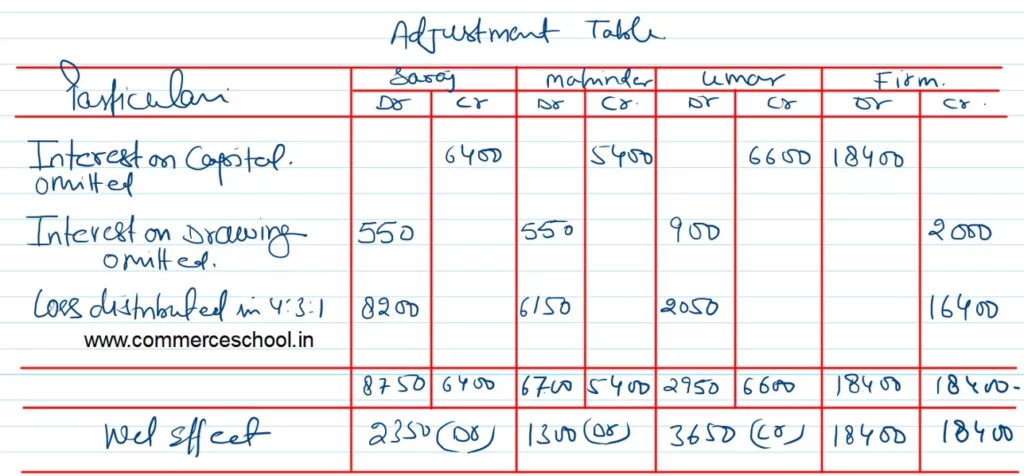 Adjustment Table
Particulars Saroj Mahinder Umar Firm.
Dr Cr Dr Cr. Dr Cr Dr Cr.
Interest on Capital. 6400 5400 6600 18400
omitted
Interest on Drawing 550 550 900 2000
omitted.
Loss distributed in 4:3:1 8200 6150 2050 16400
www.commerceschool.in
8750 6400 6700 5400 2950 6600 18400 18400-
Net effect 2350 (Dr) 1300 (Dr) 3650 (Cr) 18400 18400